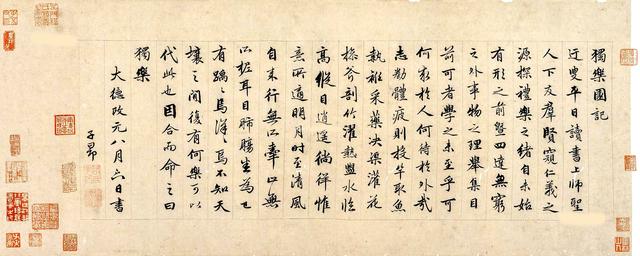 獨樂園記
迂叟平日讀書上師聖
人下友羣賢窺仁義之
源探禮樂之緒自未始
有形之前暨四達無窮
之外事物之理舉集目
前可者學之未至乎可
何求於人何待於外哉
志勌體疲則投竿取魚
執衽采藥決渠灌花
操斧剖竹濯熱盥水臨
高縱目逍遙徜徉惟
意所適明月時至清風
自来行無所牽止無
所柅耳目肺腸悉為己
有踽踽焉洋洋焉不知天
壤之間復有何樂可以
代此也因合而命之曰
獨樂
大德改元八月六日書
子昂